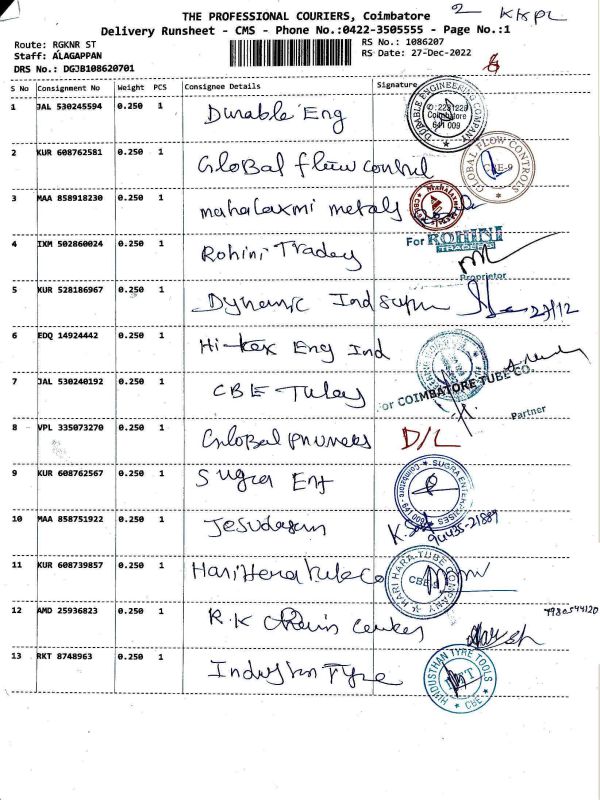 THE PROFESSIONAL COURIERS, Coimbatore
2 KKPL
Delivery Runsheet - CMS - Phone No.:0422-3505555 - Page No.:1
Route: RGKNR ST
RS No.: 1086207
Staff: ALAGAPPAN
RS Date: 27-Dec-2022
DRS No.: DGJB108620701
S No Consignment No Weight PCS Consignee Details Signature
1 JAL 530245594 0.250 1 Durable Eng
DURABLE ENGINEERING COMPANY Coimbatore 641 009
2 KUR 608762581 0.250 1 Global flow control
GLOBAL FLOW CONTROLS CBE-9
3 MAA 858918230 0.250 1 mahalaxmi metals
4 IXM 502860024 0.250 1 Rohini Tradey
For ROHINI TRADERS
Proprietor
5 KUR 528186967 0.250 1 Dynamic Ind 27/12
6 EDQ 14924442 0.250 1 Hi-tex Eng Ind
7 JAL 530240192 0.250 1 CBE Tubes
For COIMBATORE TUBE CO.
Partner
8 VPL 335073270 0.250 1 Global D/L
9 KUR 608762567 0.250 1 Sugra Ent
SUGRA ENTERPRISES Coimbatore
10 MAA 858751922 0.250 1 Jesudasan
94435-21889
11 KUR 608739857 0.250 1 Harihara tube Co
HARI HARA TUBE COMPANY CBE-9
12 AMD 25936823 0.250 1 R.K Chain
13 RKT 8748963 0.250 1 Tyre
HINDUSTHAN TYRE TOOLS CBE